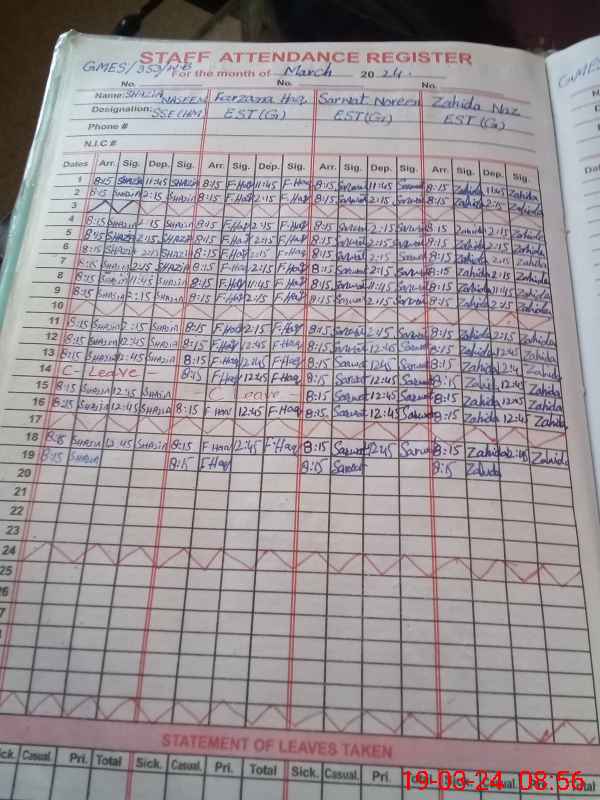 STAFF ATTENDANCE REGISTER
GMES/353/HB For the month of March 2024.
No. No. No.
Name: SHAZIA NASREEN Farzana Haq Sarwat Noreen Zahida Naz
Designation: SSE EST(G) EST(G) EST(G)
Phone #
N.I.C #
Dates Arr. Sig. Dep. Sig. Arr. Sig. Dep. Sig. Arr. Sig. Dep. Sig. Arr. Sig. Dep. Sig.
1 8:15 SHAZIA 11:45 SHAZIA 8:15 F-Haq 11:45 F-Haq 8:15 Sarwat 11:45 Sarwat 8:15 Zahida 11:45 Zahida
2 8:15 SHAZIA 2:15 SHAZIA 8:15 F-Haq 2:15 F-Haq 8:15 Sarwat 2:15 Sarwat 8:15 Zahida 2:15 Zahida
3
4 8:15 SHAZIA 15 SHAZIA 8:15 F-Haq 2:15 F-Haq 8:15 Sarwat 2:15 Sarwat 8:15 Zahida 2:15 Zahida
5 8:15 SHAZIA 2:15 SHAZIA 8:15 F-Haq 2:15 F-Haq 8:15 Sarwat 2:15 Sarwat 8:15 Zahida 2:15 Zahida
6 8:15 SHAZIA 2:15 SHAZIA 8:15 F-Haq 2:15 F-Haq 8:15 Sarwat 2:15 Sarwat 8:15 Zahida 2:15 Zahida
7 8:15 SHAZIA 2:15 SHAZIA 8:15 F-Haq 2:15 F-Haq 8:15 Sarwat 2:15 Sarwat 8:15 Zahida 2:15 Zahida
8 8:15 SHAZIA 11:45 SHAZIA 8:15 F-Haq 11:45 F-Haq 8:15 Sarwat 11:45 Sarwat 8:15 Zahida 11:45 Zahida
9 8:15 SHAZIA 2:15 SHAZIA 8:15 F-Haq 2:15 F-Haq 8:15 Sarwat 2:15 Sarwat 8:15 Zahida 2:15 Zahida
10
11 8:15 SHAZIA 2:15 SHAZIA 8:15 F-Haq 2:15 F-Haq 8:15 Sarwat 2:15 Sarwat 8:15 Zahida 2:15 Zahida
12 8:15 SHAZIA 12:45 SHAZIA 8:15 F-Haq 12:45 F-Haq 8:15 Sarwat 12:45 Sarwat 8:15 Zahida 12:45 Zahida
13 8:15 SHAZIA 12:45 SHAZIA 8:15 F-Haq 12:45 F-Haq 8:15 Sarwat 1245 Sarwat 8:15 Zahida Zahida
14 C- Leave - 8:15 F-Haq 12:45 F-Haq 8:15 Sarwat 12:45 Sarwat 8:15 Zahida 12:45 Zahida
15 8:15 SHAZIA 12:45 SHAZIA - C Leave - 8:15 Sarwat 12:45 Sarwat 8:15 Zahida 12:45 Zahida
16 8:15 SHAZIA 12:45 SHAZIA 8:15 F-Haq 12:45 F-Haq 8:15 Sarwat 12:45 Sarwat 8:15 Zahida 12:45 Zahida
17
18 8:15 SHAZIA 12:45 SHAZIA 8:15 F-Haq 12:45 F-Haq 8:15 Sarwat 12:45 Sarwat 8:15 Zahida 12:45 Zahida
19 8:15 SHAZIA 8:15 F-Haq 8:15 Sarwat 8:15 Zahida
20
21
22
23
24
25
STATEMENT OF LEAVES TAKEN
Sick. Casual. Pri. Total Sick. Casual. Pri. Total Sick. Casual. Pri. Total Sick. Casual. Pri. Total
19-03-24 08:56